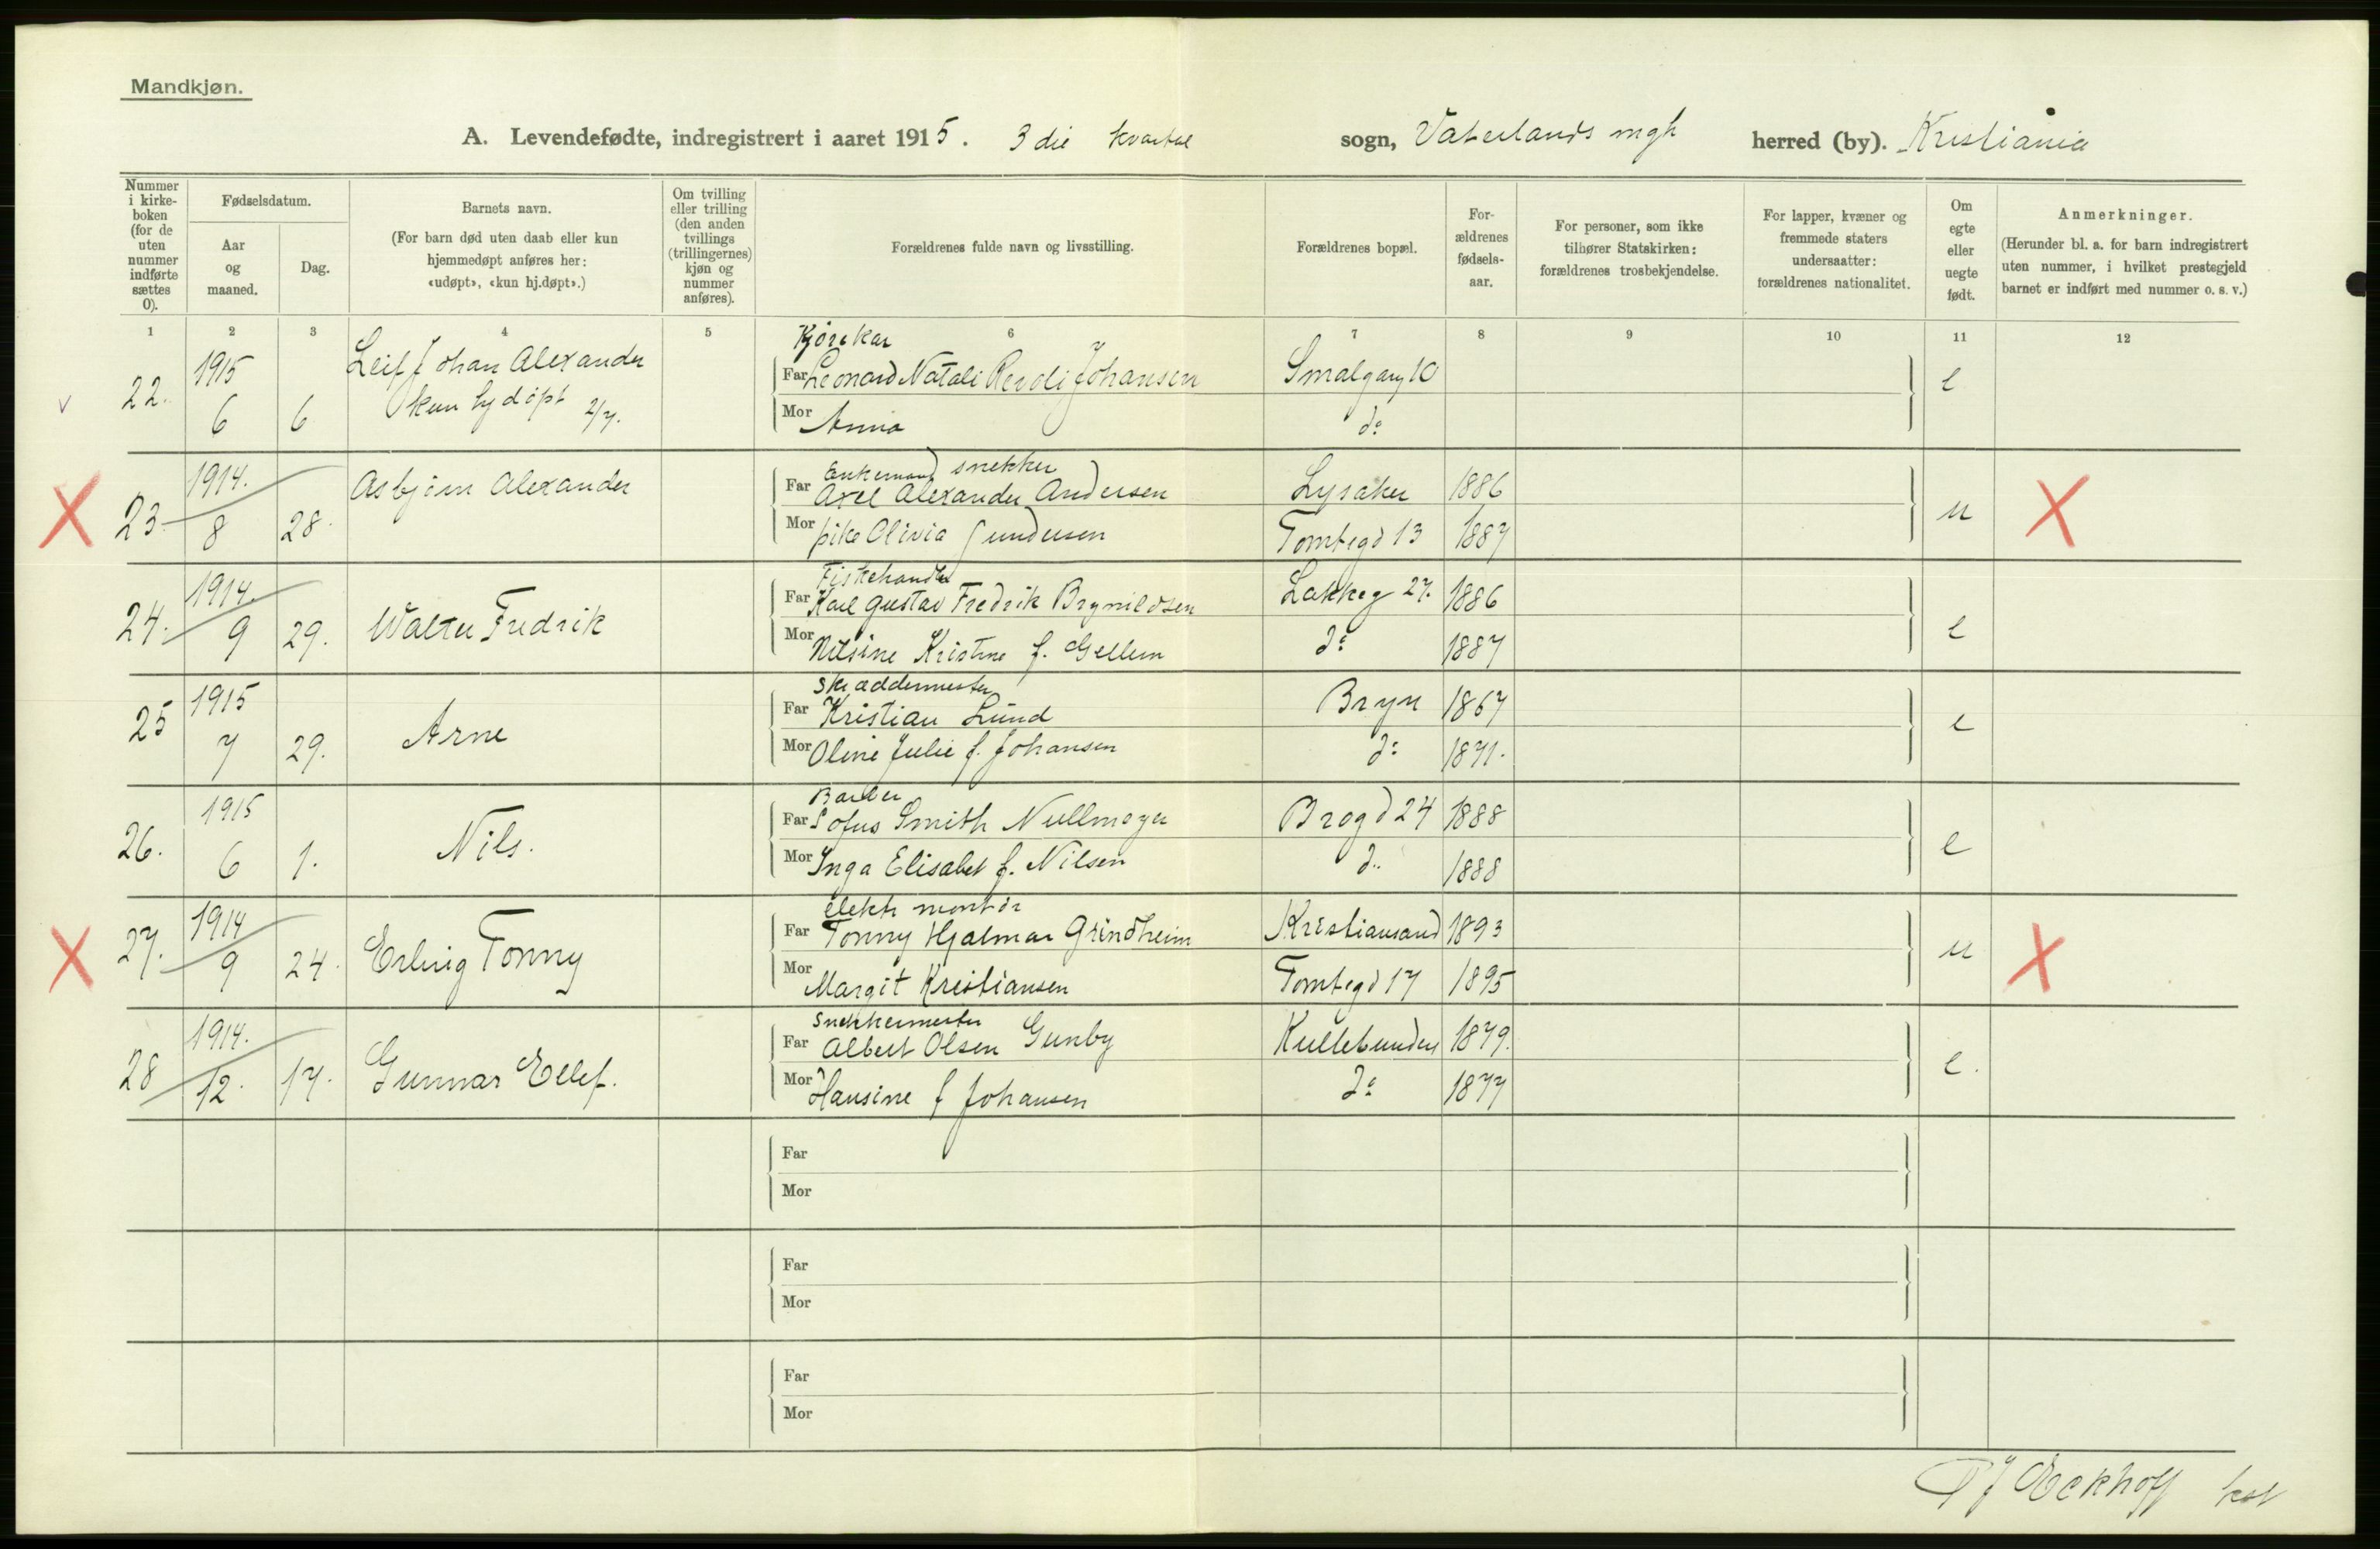 Mandkjøn.
A. Levendefødte, indregistrert i aaret 1915. 3die kvartal sogn, Vaterlands mgh herred (by). Kristiania
Nummer i kirkeboken (for de uten nummer indførte sættes 0).
Fødselsdatum.
Aar og maaned.
Dag.
Barnets navn.
(For barn død uten daab eller kun hjemmedøpt anføres her: «udøpt», «kun hj.døpt».)
Om tvilling eller trilling (den anden tvillings (trillingernes) kjøn og nummer anføres).
Forældrenes fulde navn og livsstilling.
Forældrenes bopæl.
Forældrenes fødselsaar.
For personer, som ikke tilhører Statskirken: forældrenes trosbekjendelse.
For lapper, kvæner og fremmede staters undersaatter: forældrenes nationalitet.
Om egte eller uegte født.
Anmerkninger.
(Herunder bl. a. for barn indregistrert uten nummer, i hvilket prestegjeld barnet er indført med nummer o. s. v.)
1 2 3 4 5 6 7 8 9 10 11 12
Kjørekar
22. 1915 6 6 Leif Johan Alexander
kun hjdøpt 2/7.
Far Leonard Natali Johansen Smalgang 10 e
Mor Anna do
X 23 1914. 8 28. Asbjørn Alexander
Enkemand snekker
Far Axel Alexander Andersen Lysaker 1886 u X
Mor pike Olivia Gundersen Tomtegd 13 1887
24. 1914. 9 29. Walter Fredrik
Fiskehandler
Far Karl Gustav Fredrik Brynildsen Lakkeg 27. 1886 e
Mor Nilsine Kristine f. Gellein do 1887
25 1915 7 29. Arne
Skræddermester
Far Kristian Lund Bryn 1867 e
Mor Oline Julie f. Johansen do 1871.
26. 1915 6 1. Nils.
Barber
Far Sofus Smith Nullmeyer Brogd 24 1888 e
Mor Inga Elisabet f. Nilsen d.. 1888
X 27. 1914 9 24. Erling Tonny
elektr montør
Far Tonny Hjalmar Grindheim Kristiansand 1893 u X
Mor Margit Kristiansen Tomtegd 17 1895
28 1914. 12. 17. Gunnar Ellef.
Snekkermester
Far Albert Olsen Gunby Kullebunden 1879. e.
Mor Hansine f Johansen do 1877
Far
Mor
Far
Mor
Far
Mor
Eckhoff